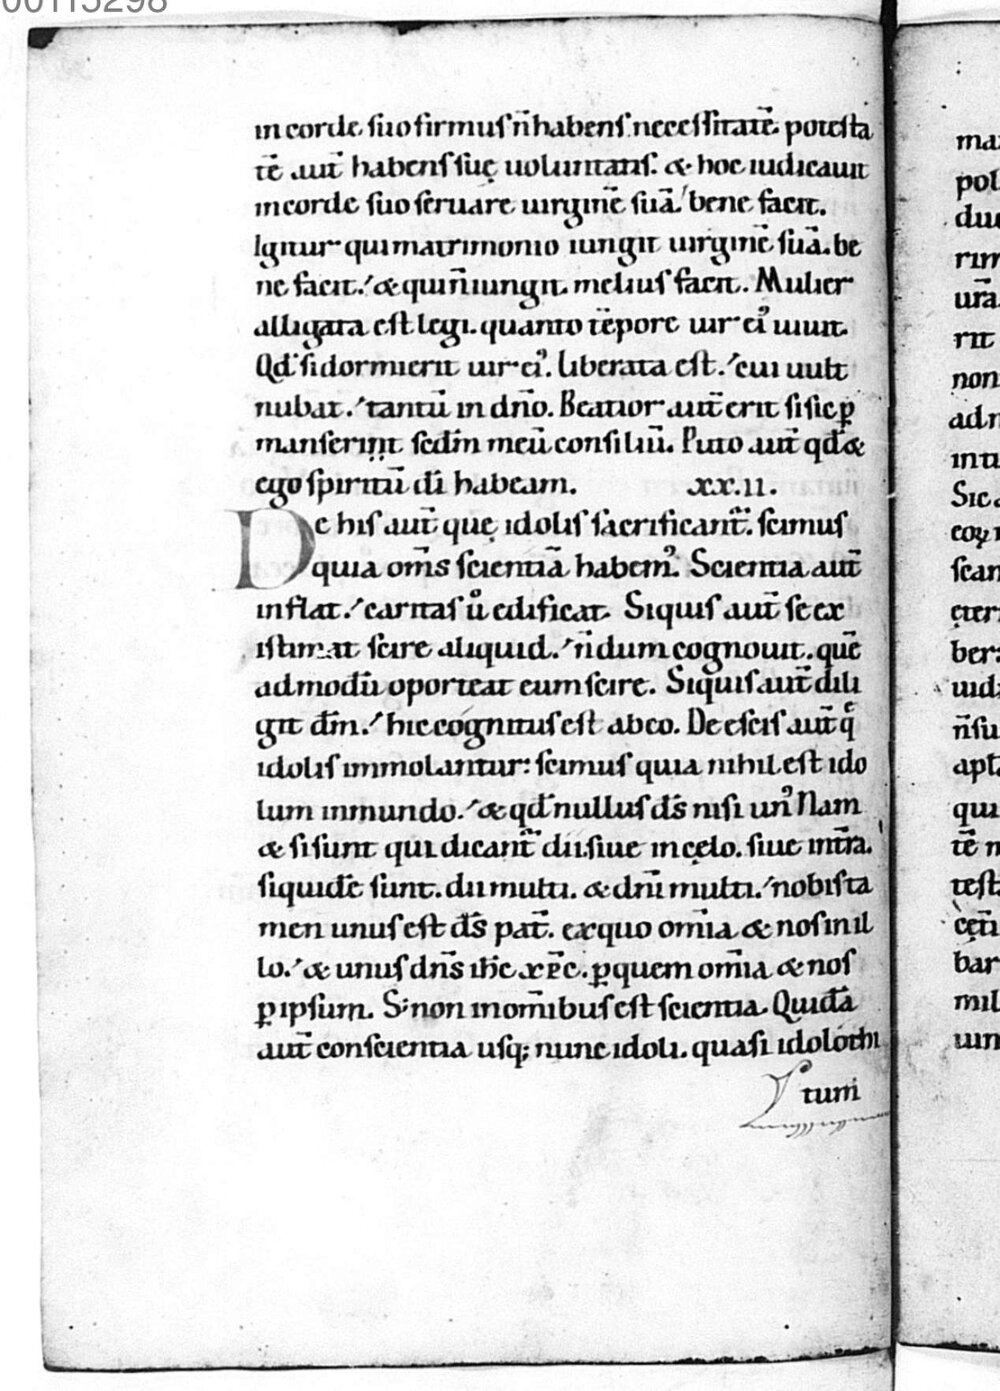 00115298
in corde suo firmus n̄ habens necessitatē. potesta
tē aut̄ habens suę uoluntatis. & hoc iudicauit
in corde suo seruare uirginē suā. bene facit.
Igitur qui matrimonio iungit uirginē suā. be
ne facit. & qui n̄ iungit. melius facit. Mulier
alligata est legi. quanto tēpore uir ei᾿ uiuit.
Qd̄ si dormierit uir ei᾿. liberata est. cui uult
nubat. tantū in dn̄o. Beatior aut̄ erit si sic ꝑ
manserint sed̄m meū consiliū. Puto aut̄ qd̄ &
ego spiritū dī habeam. xx.ii.
De his aut̄ quę idolis sacrificant᷑. scimus
quia om̄s scientiā habem᾿. Scientia aut̄
inflat. caritas ů edificat. Siquis aut̄ se ex
istimat scire aliquid. n̄dum cognouit. quē
admodū oporteat eum scire. Siquis aut̄ dili
git dm̄. hic cognitus est ab eo. De escis aut̄ q̄
idolis immolantur: scimus quia nihil est ido
lum in mundo. & qd̄ nullus ds̄ nisi un᾿ Nam
& si sunt qui dicant᷑ dii. siue in cęlo. siue in tr̄a.
siquidē sunt. dii multi. & dnī multi. nobis ta
men unus est ds̄ pat̄. ex quo om̄ia & nos in il
lo. & unus dn̄s ih̄c xp̄c. ꝑ quem om̄ia & nos
ꝑ ipsum. S; non in om̄ibus est scientia. Quidā
aut̄ conscientia usq; nunc idoli. quasi idolothi
tum
ma
pol
duc
rim
urā
rit
non
adn
inti
Sic
eoꝝ
scan
ętern
ber
uid
n̄ su
apt
qui
tē
test
cęti
bar
mil
uin